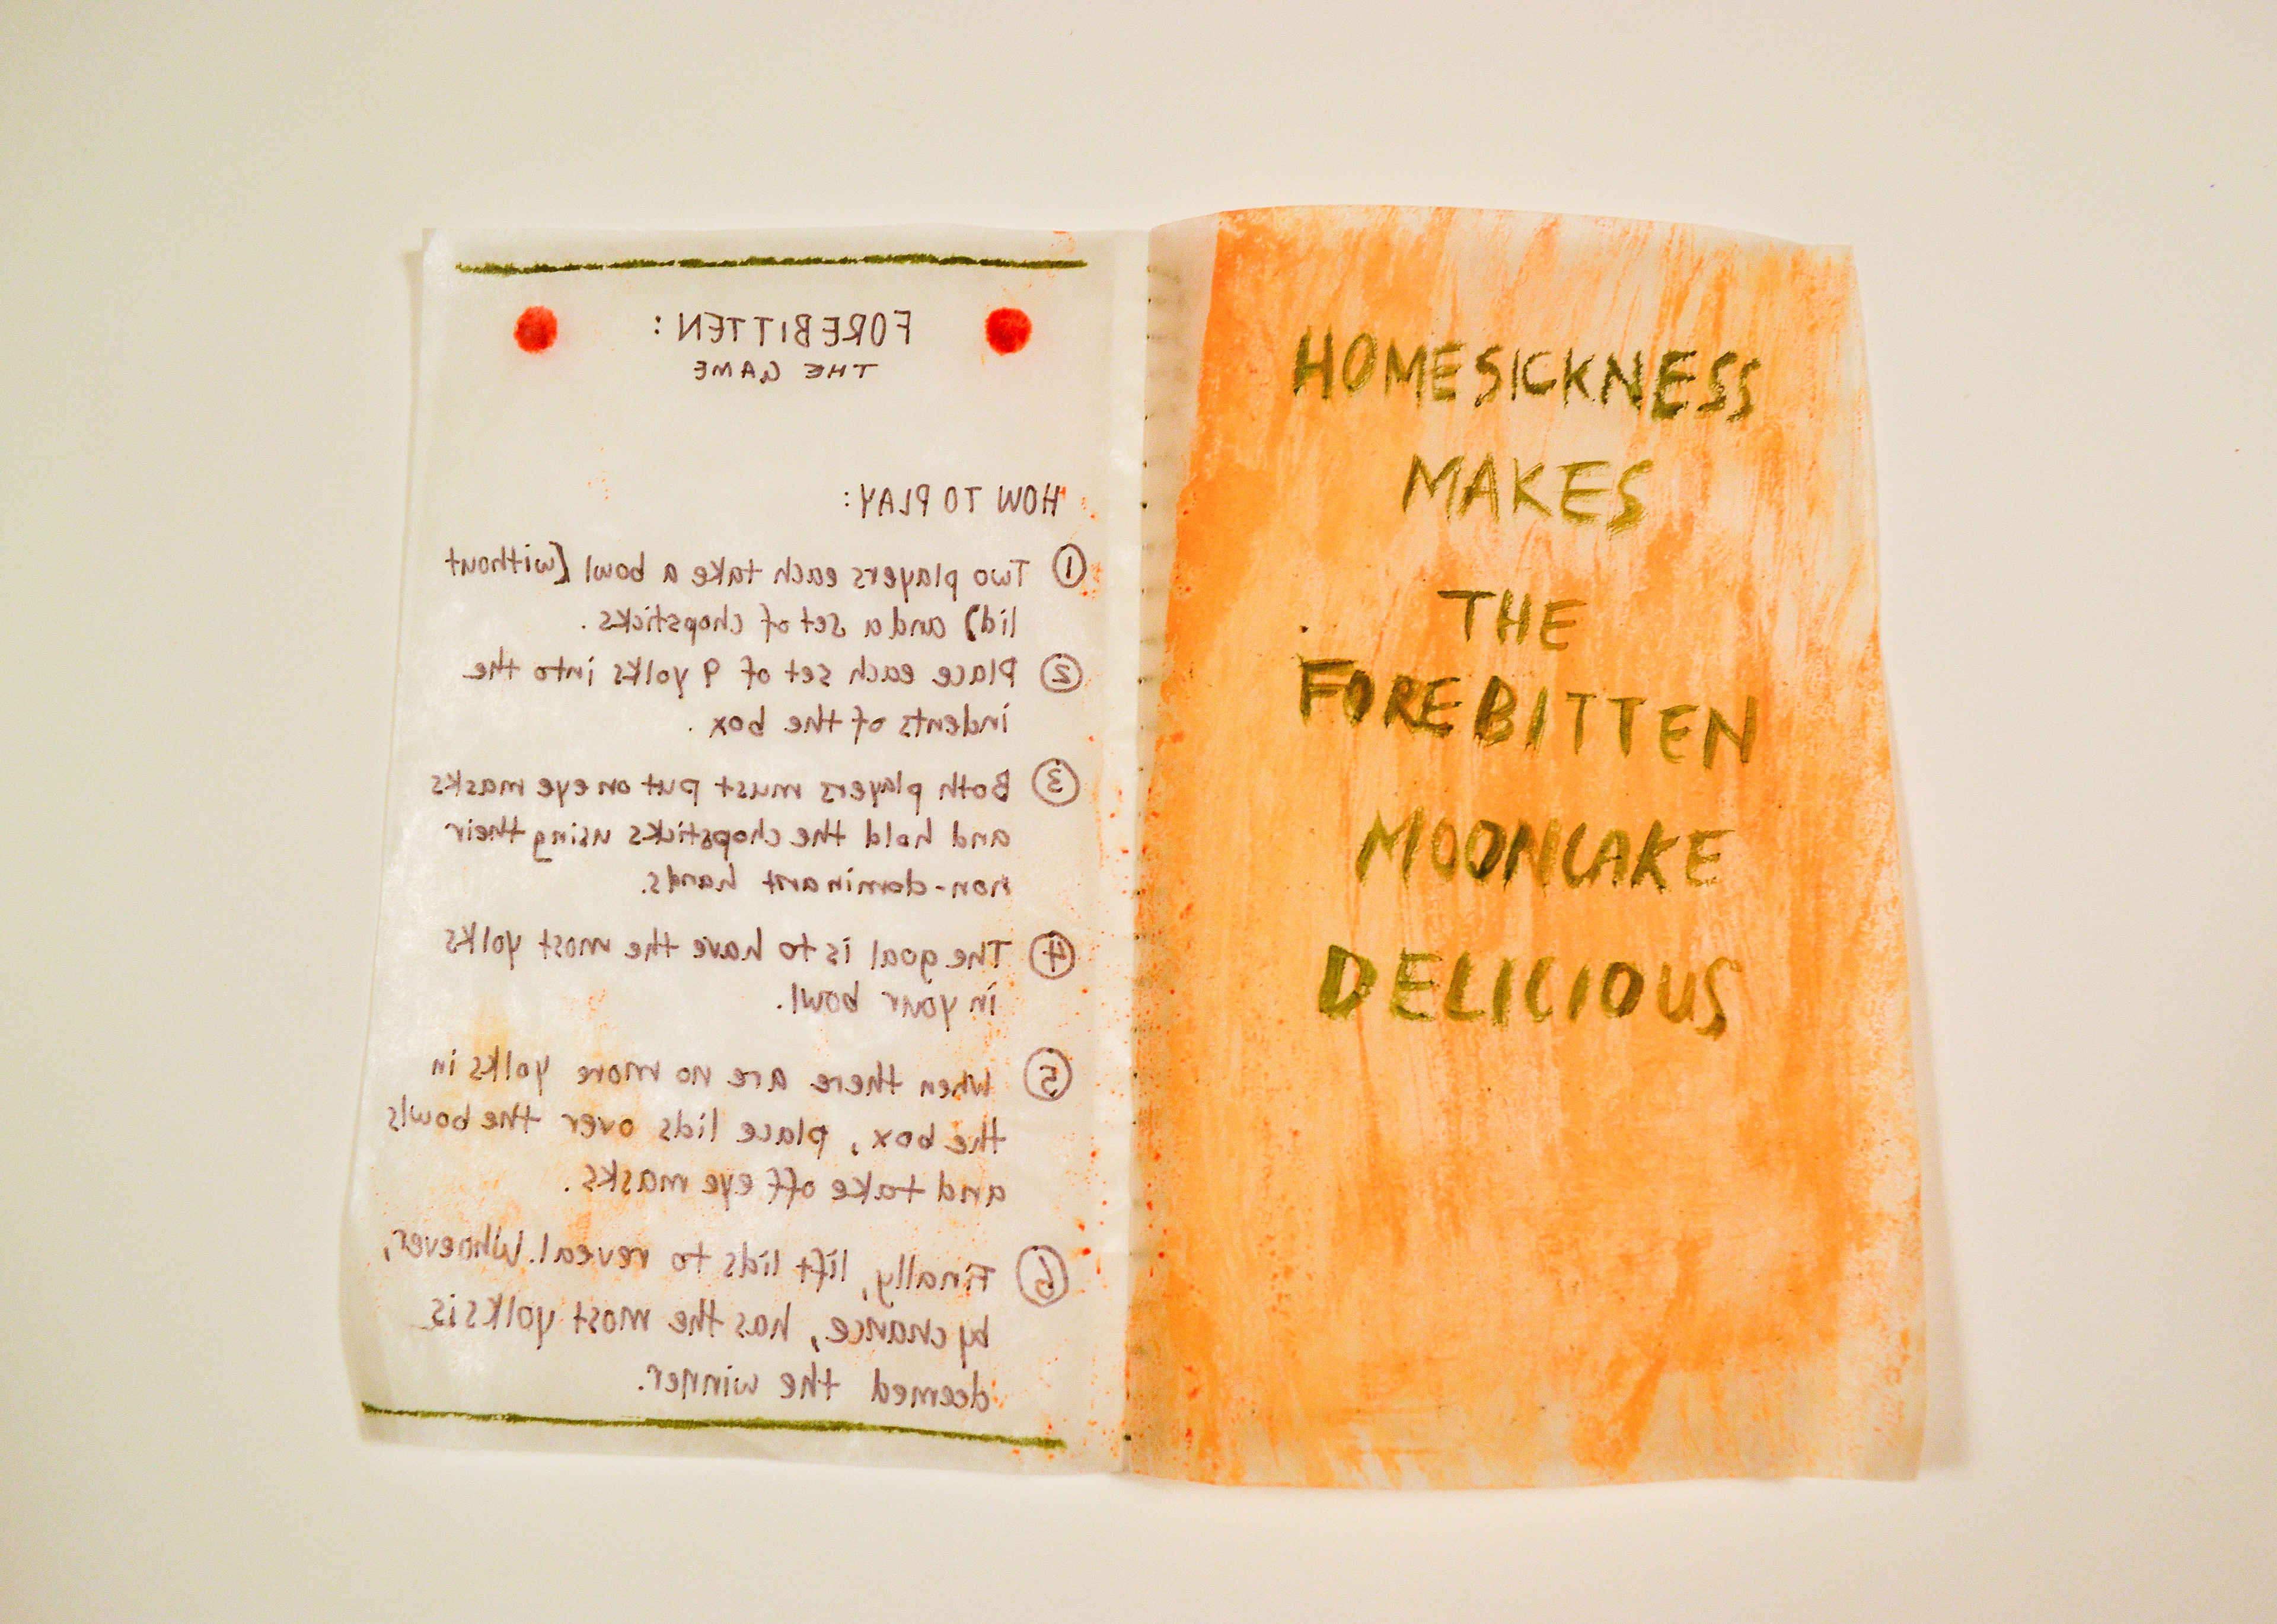 FOREBITTEN:
THE GAME
HOW TO PLAY:
① Two players each take a bowl (without
lid) and a set of chopsticks.
② Place each set of 9 yolks into the
indents of the box.
③ Both players must put on eye masks
and hold the chopsticks using their
non-dominant hands.
④ The goal is to have the most yolks
in your bowl.
⑤ When there are no more yolks in
the box, place lids over the bowls
and take off eye masks.
⑥ Finally, lift lids to reveal. Whoever,
by chance, has the most yolks is
deemed the winner.
HOMESICKNESS
MAKES
THE
FOREBITTEN
MOONCAKE
DELICIOUS